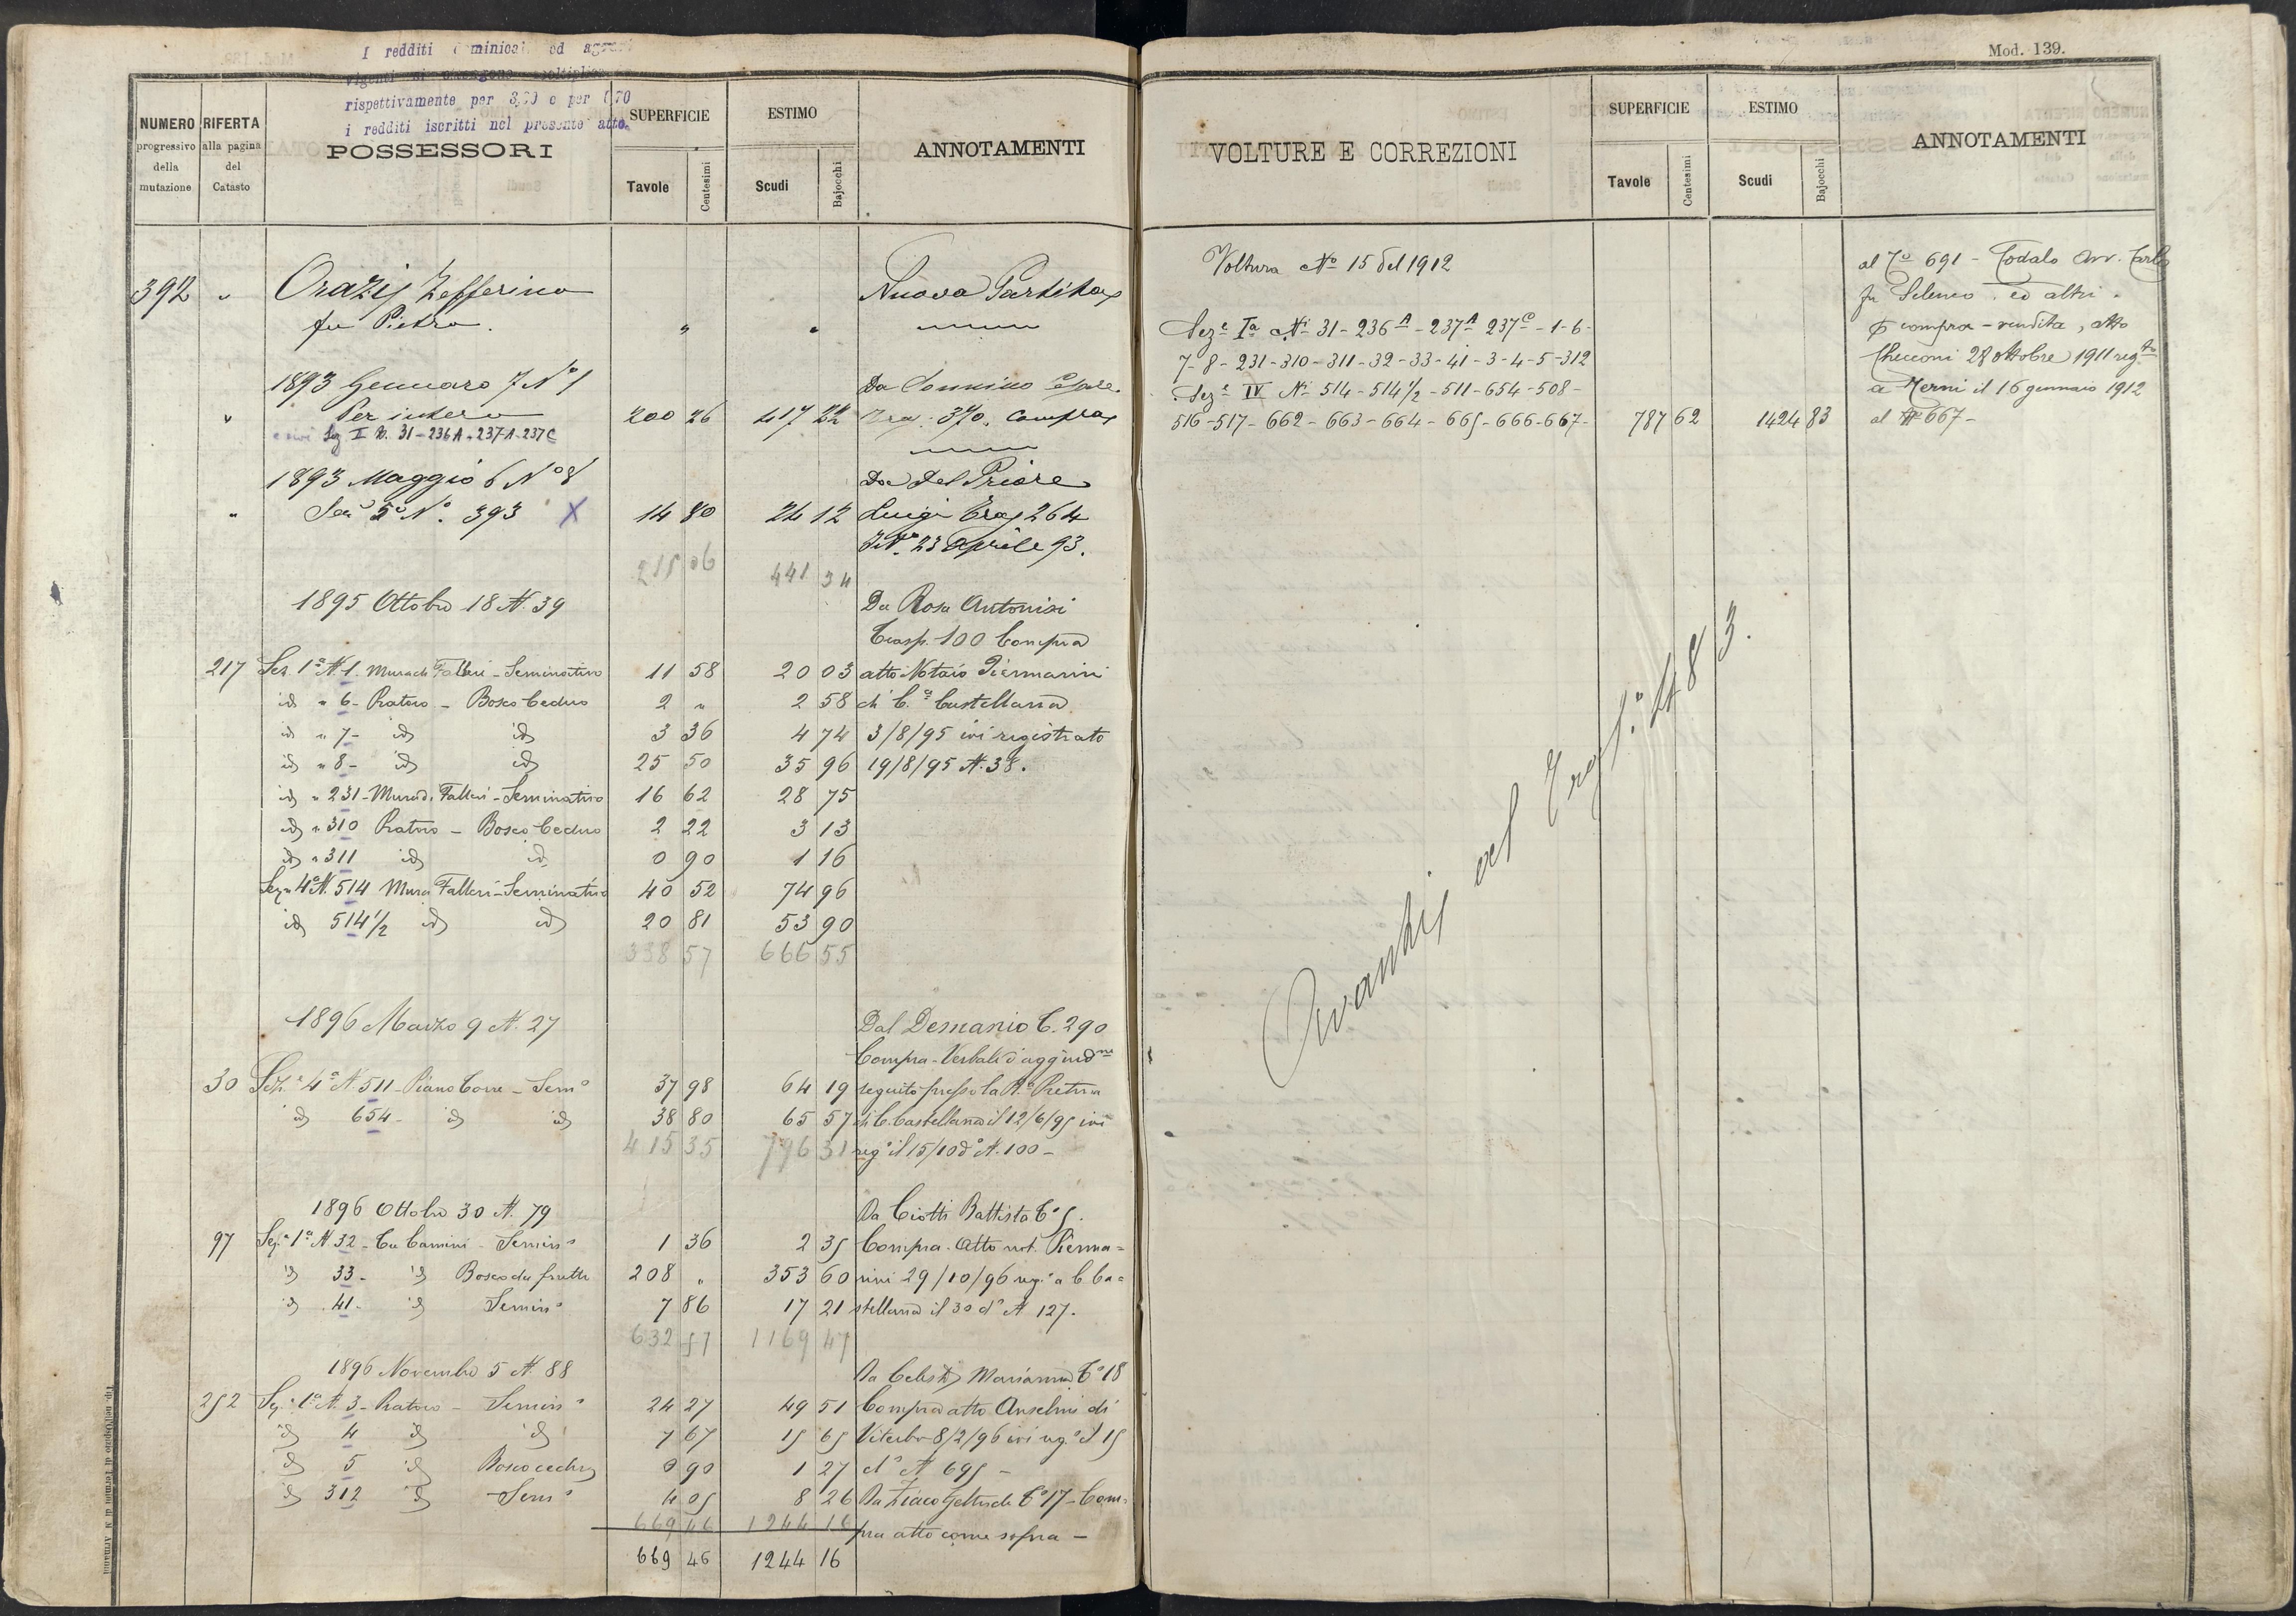 I redditi dominicali ed agrari
vigenti si ottengono moltiplicando
rispettivamente per 3,20 e per 0,70
i redditi iscritti nel presente atto.
NUMERO progressivo della mutazione
RIFERTA alla pagina del Catasto
POSSESSORI
SUPERFICIE
Tavole Centesimi
ESTIMO
Scudi Bajocchi
ANNOTAMENTI
392 " Orazij Zefferino Nuova Partita
fu Pietro. " "
1893 Gennaro 7 N° 1 Da Sonnino Cesare
" Per intero 200 26 417 22 Tras. 370. Compra
Sez I N. 31-236A-237A-237C
1893 Maggio 6 N° 8 Da Del Priore
" Sez 5ª N°. 393 X 14 80 24 12 Luigi Tras 264
23 Aprile 93.
215 06 441 34
1895 Ottobre 18 N. 39 Da Rosa Antonisi
Trasp. 100 Compra
217 Sez. 1ª N. 1. Mura di Falleri - Seminativo 11 58 20 03 atto Notaio Piermarini
id " 6- Ratoro - Bosco Ceduo 2 " 2 58 di C.ª Castellana
id " 7- id id 3 36 4 74 3/8/95 ivi registrato
id " 8- id id 25 50 35 96 19/8/95 N. 38.
id " 231- Mura d. Falleri - Seminativo 16 62 28 75
id " 310 Ratoro - Bosco Ceduo 2 22 3 13
id " 311 id id 0 90 1 16
Sez. 4ª N. 514 Mura Falleri - Seminativo 40 52 74 96
id 514 1/2 id id 20 81 53 90
338 57 666 55
1896 Marzo 9 N. 27 Dal Demanio C. 290
Compra - Verbale d'aggiud.ne
30 Sez. 4ª N. 511 - Piano Torre - Sem° 37 98 64 19 seguito presso la R.ª Pretura
id 654 - id id 38 80 65 57 di C. Castellana il 12/6/95 ivi
415 35 796 31 reg° il 15/10 d° N. 100 -
1896 Ottobre 30 N. 79 Da Ciotti Battista T° 5.
97 Sez. 1ª N 32 - Ca Camini - Semin° 1 36 2 35 Compra. Atto not. Pierma=
id 33 - id Bosco da frutto 208 " 353 60 rini 29/10/96 reg.° a C. Ca=
id 41 - id Semin° 7 86 17 21 stellana il 30 d° N 127.
632 57 1169 47
1896 Novembre 5 N. 88 Da Celesti Marianna T° 18
252 Sez. 1ª N. 3 - Ratoro - Semin° 24 27 49 51 Compra atto Anselmi di
id 4 id id 7 67 15 65 Viterbo 8/2/96 ivi reg.° il 15
id 5 id Bosco ceduo 0 90 1 27 d° N 695 -
id 312 id Sem° 4 05 8 26 Da Ziaco Geltrude T° 17 - Com-
669 46 1244 16 pra atto come sopra -
669 46 1244 16
Mod. 139.
VOLTURE E CORREZIONI
SUPERFICIE
Tavole Centesimi
ESTIMO
Scudi Bajocchi
ANNOTAMENTI
Voltura N° 15 del 1912
Sez.e Iª Ni 31-236A-237A 237C-1-6-
7-8-231-310-311-32-33-41-3-4-5-312
Sez.e IV Ni 514-514 1/2-511-654-508-
516-517-662-663-664-665-666-667- 787 62 1424 83
al T° 691 - Todalo Avv. Carlo
fu Seleuco ed altri.
compra-vendita, atto
Checconi 28 Ottobre 1911 reg.to
a Terni il 16 gennaio 1912
al N° 667-
Avanti al Trasp.° 483.